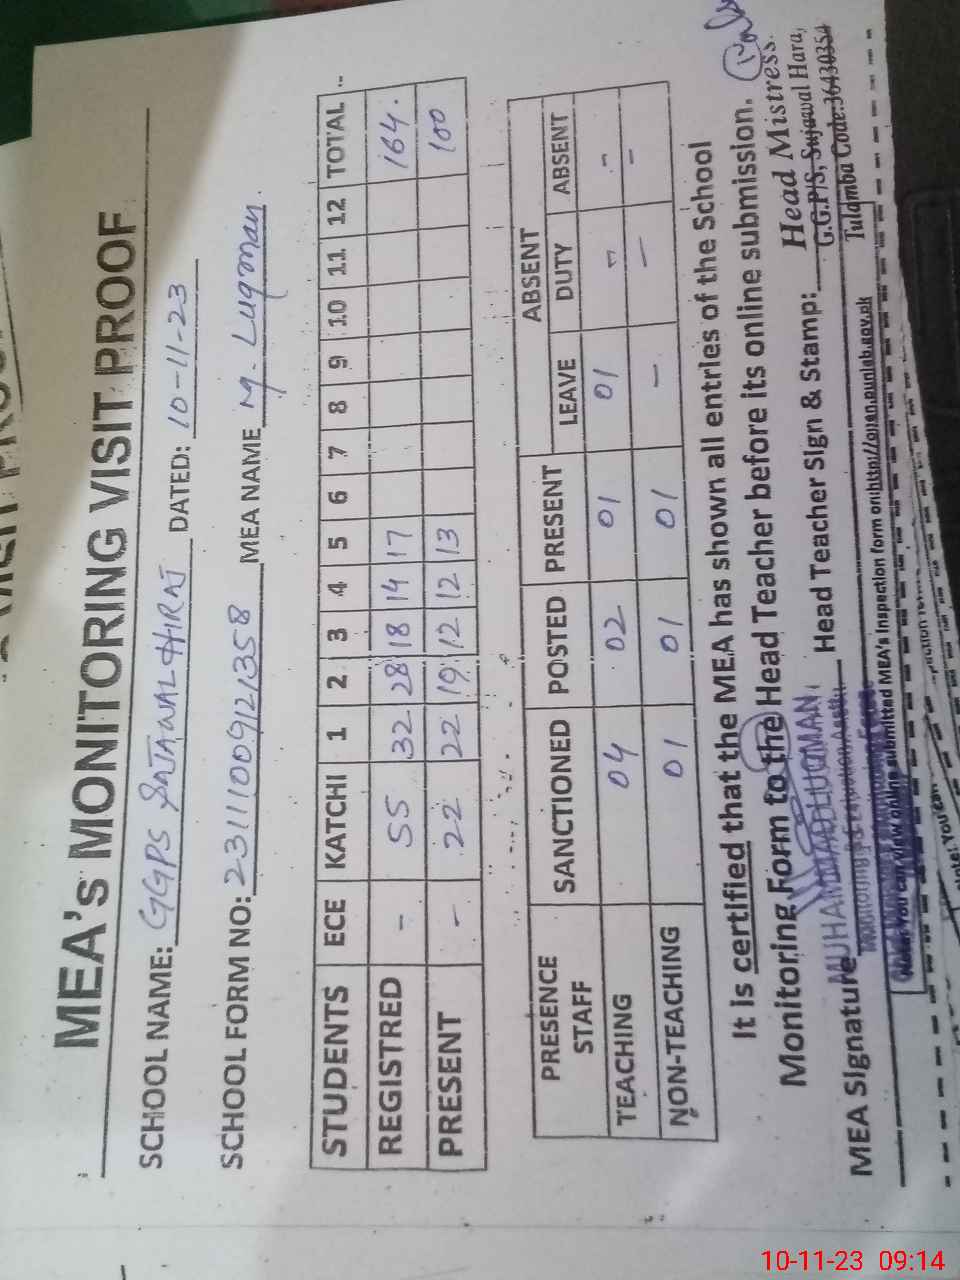 MEA's MONITORING VISIT PROOF
SCHOOL NAME: GGPS SAJAWAL HIRAJ DATED: 10-11-23
SCHOOL FORM NO: 23111009121358 MEA NAME M. Luqman.
STUDENTS ECE KATCHI 1 2 3 4 5 6 7 8 9 10 11 12 TOTAL
REGISTRED - 55 32 28 18 14 17 164.
PRESENT - 22 22 19 12 12 13 100
PRESENCE STAFF SANCTIONED POSTED PRESENT ABSENT
LEAVE DUTY ABSENT
TEACHING 04 02 01 01 - -
NON-TEACHING 01 01 01 - - -
It Is certified that the MEA has shown all entries of the School
Monitoring Form to the Head Teacher before its online submission.
MEA Signature MUHAMMAD LUQMAN Head Teacher Sign & Stamp:
Head Mistress.
G.G.P/S, Sujawal Hara,
Tulamba Code:36430354
Note: You can view online submitted MEA's inspection form on http://open.punjab.gov.pk
Note: You can
10-11-23 09:14